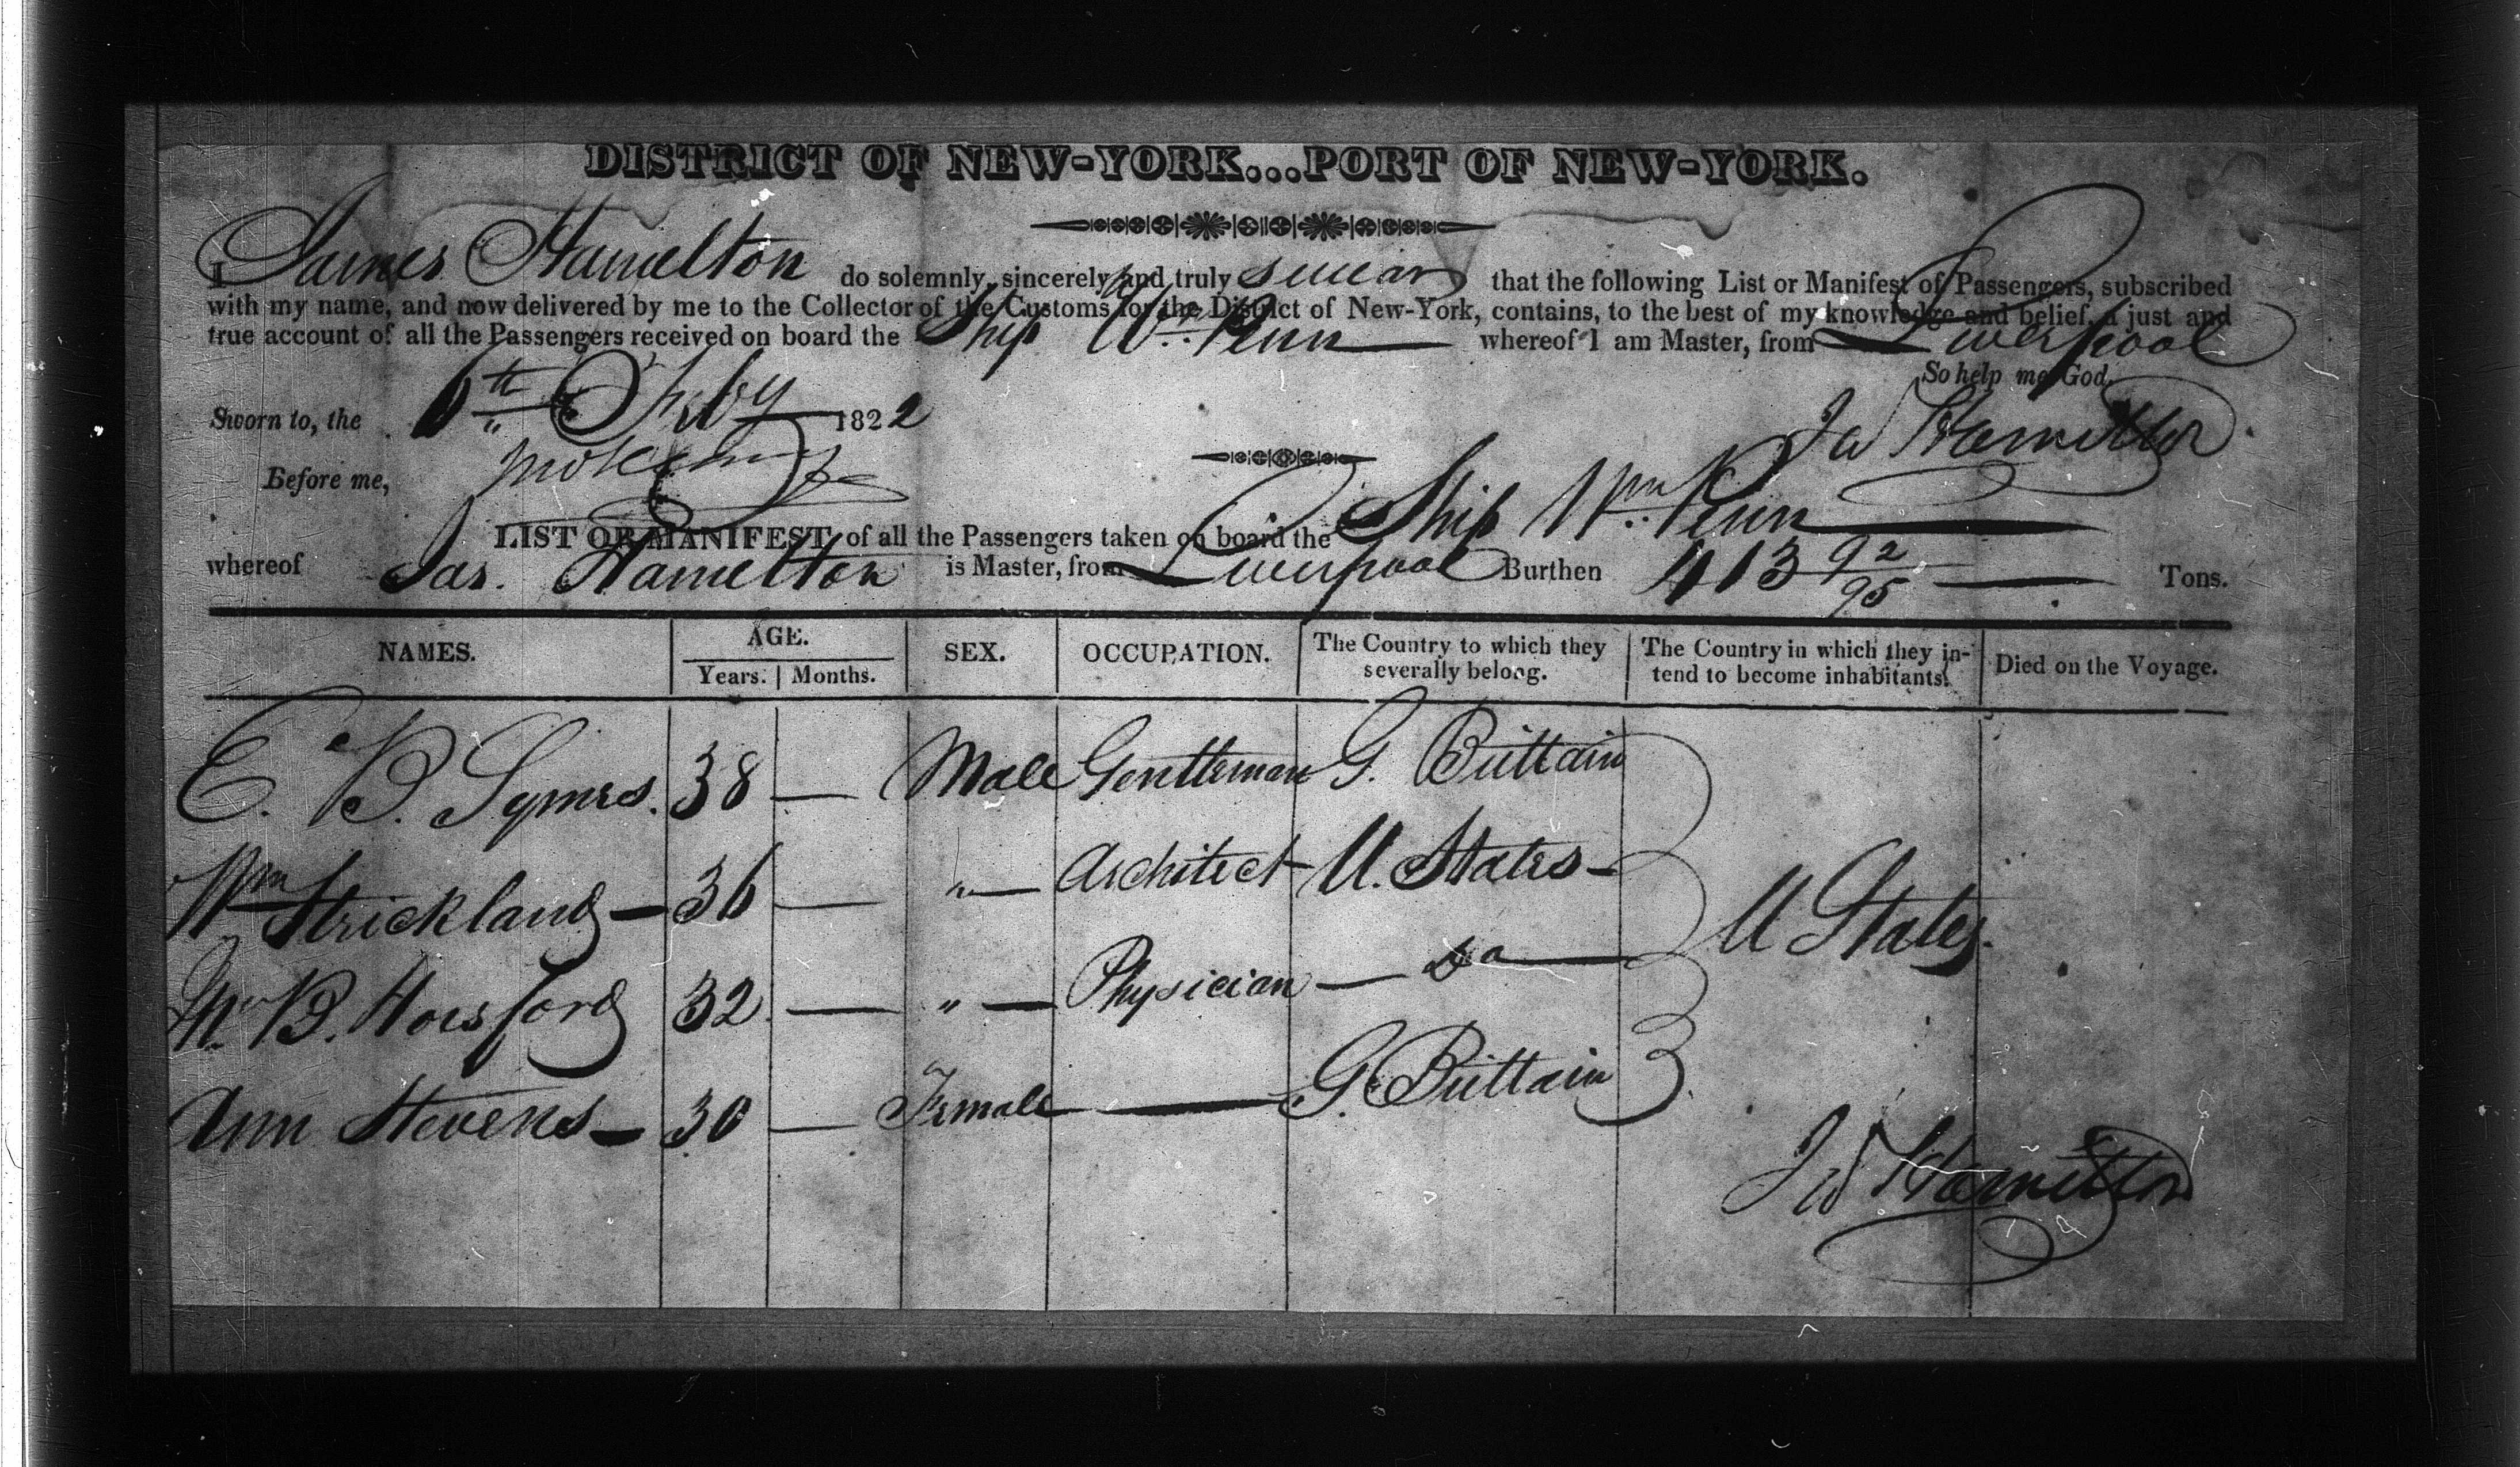 DISTRICT OF NEW-YORK...PORT OF NEW-YORK.
I James Hamelton do solemnly, sincerely and truly swear that the following List or Manifest of Passengers, subscribed
with my name, and now delivered by me to the Collector of the Customs for the District of New-York, contains, to the best of my knowledge and belief, a just and
true account of all the Passengers received on board the Ship Wm. Penn whereof I am Master, from Liverpool
So help me God.
Sworn to, the 6th Feby 1822
Jas Hamilton
Before me,
LIST OR MANIFEST of all the Passengers taken on board the Ship Wm. Penn
whereof Jas. Hamelton is Master, from Liverpool Burthen 413 92/95 Tons.
NAMES. AGE. SEX. OCCUPATION. The Country to which they severally belong. The Country in which they intend to become inhabitants. Died on the Voyage.
Years. Months.
E. B. Symes. 38 — Male Gentleman G. Brittain
Wm Strickland — 36 — " — Architect U. States —
W. B. Horsford 32 — " — Physician — Do — U States.
Ann Stevens — 30 — Female — G. Brittain
Jas Hamilton